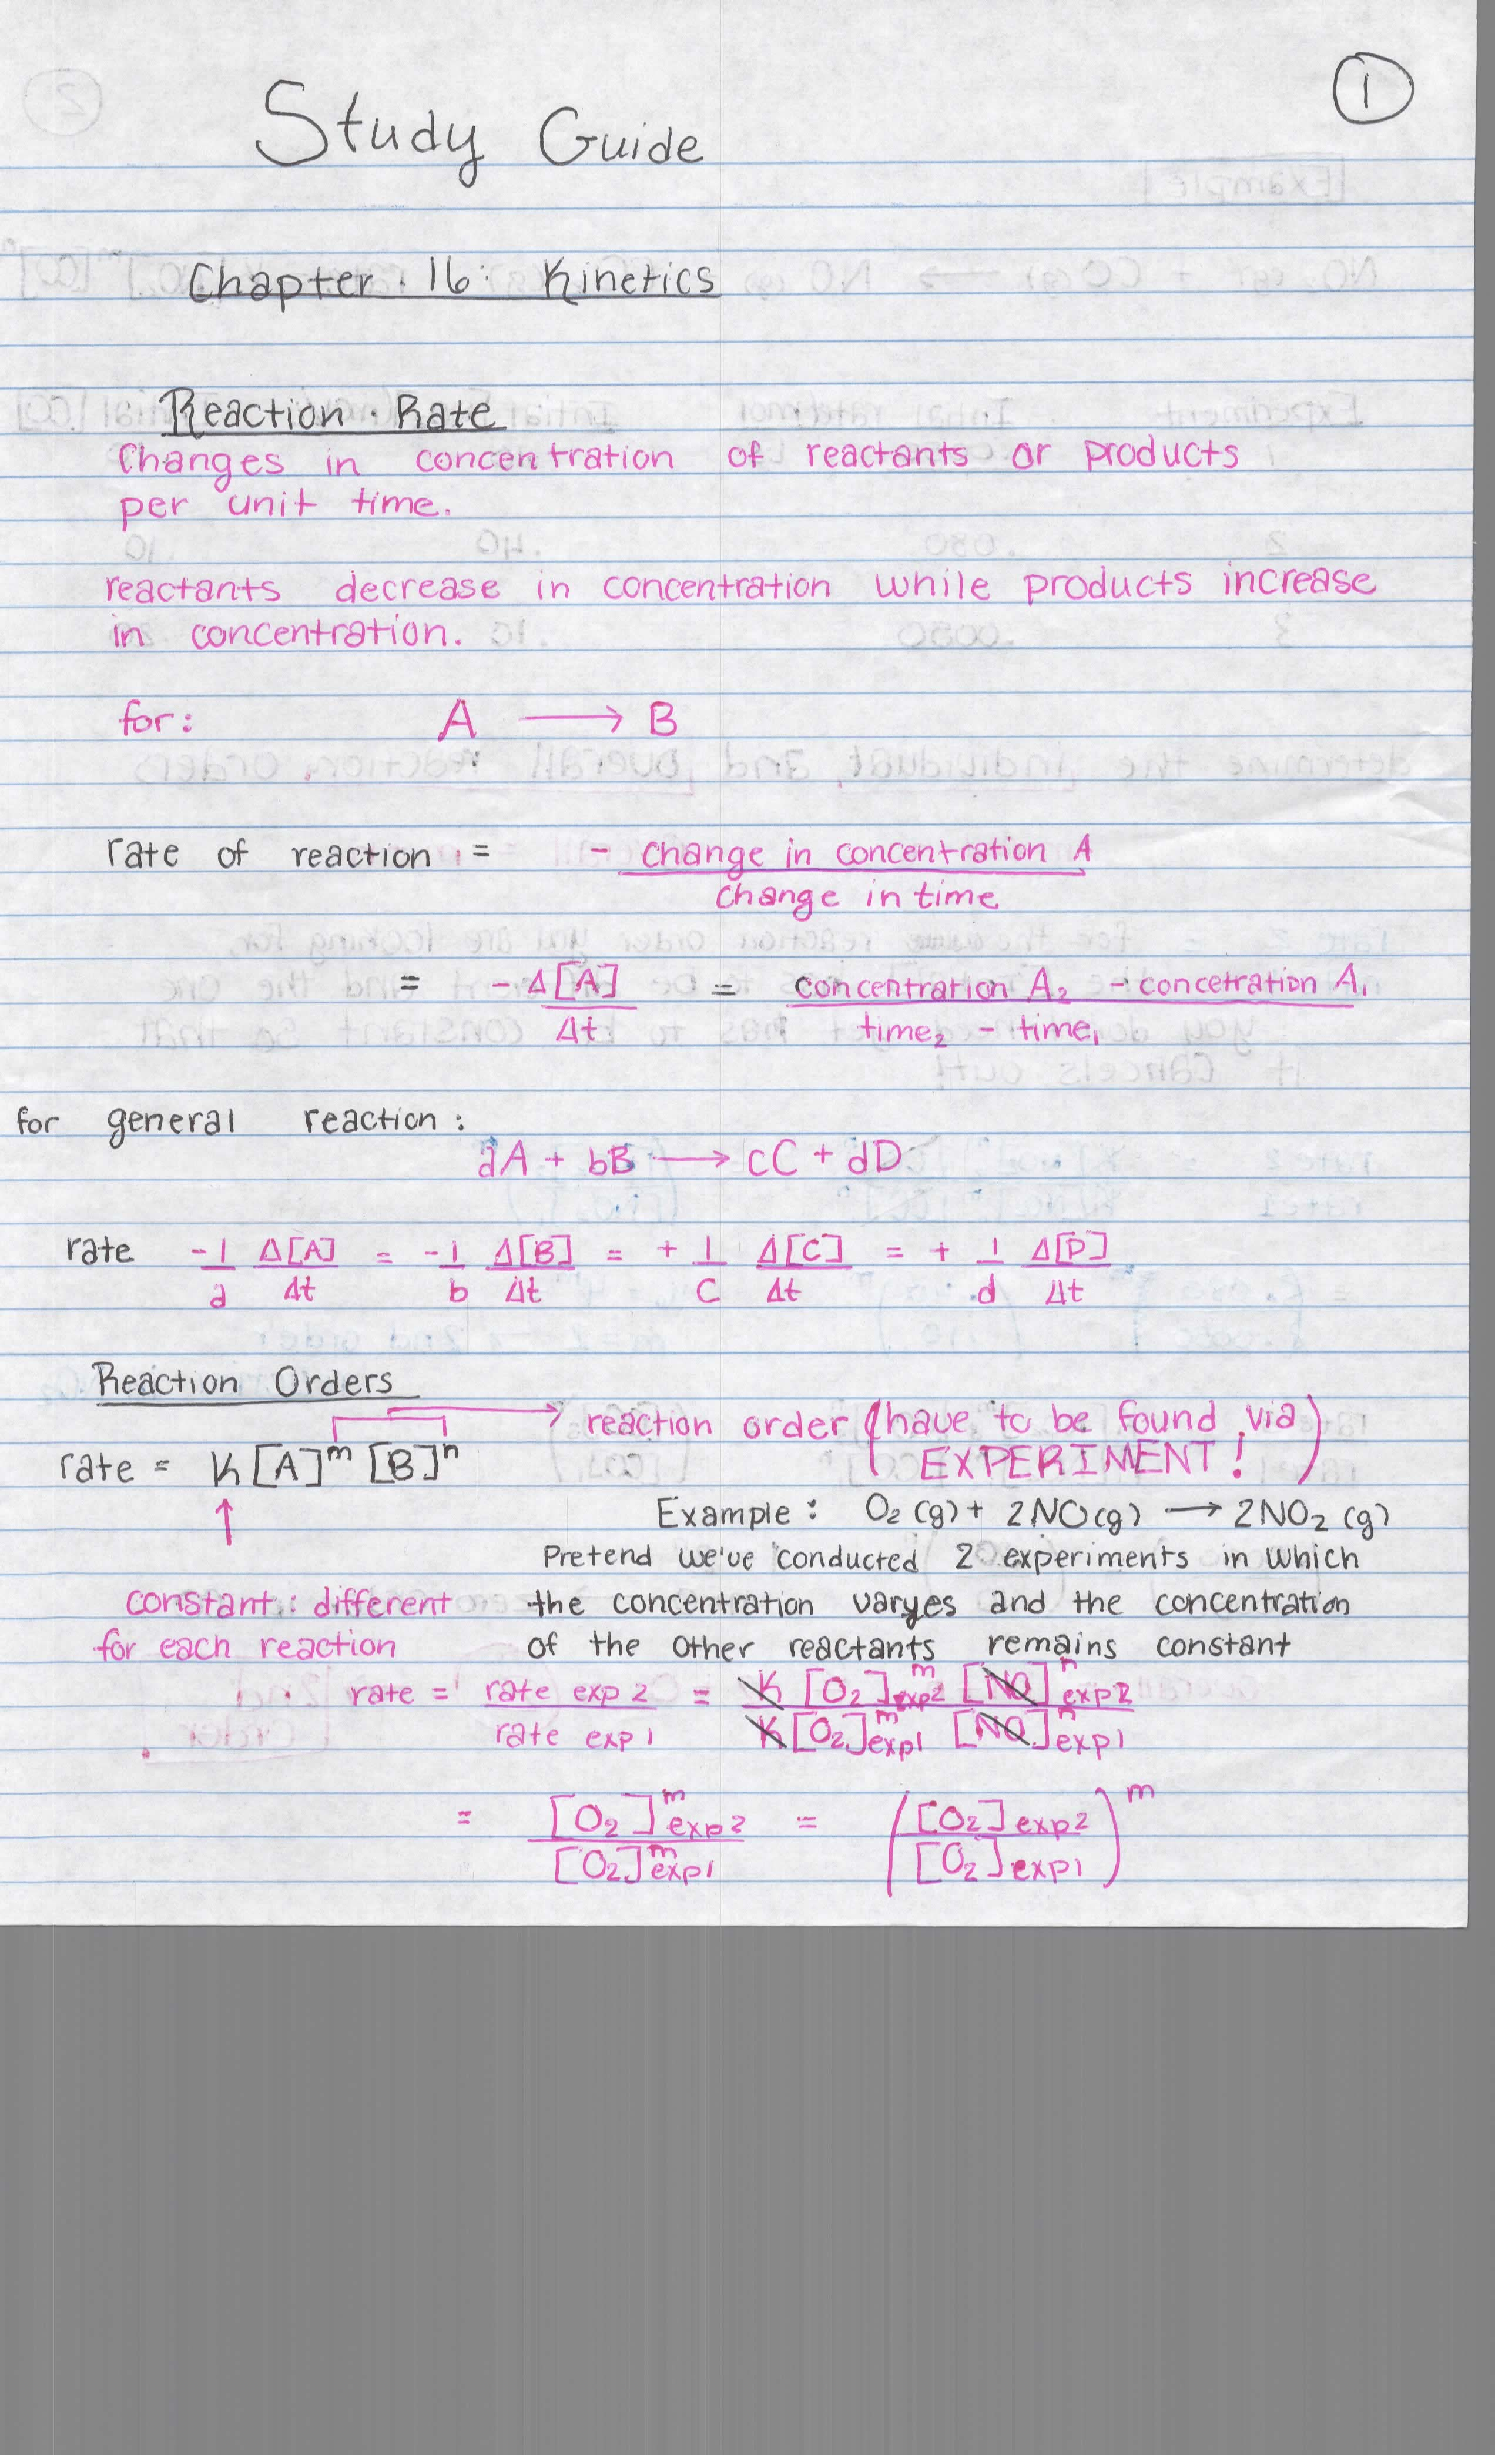 1
Study Guide
Chapter 16: Kinetics
Reaction Rate
Changes in concentration of reactants or products
per unit time.
reactants decrease in concentration while products increase
in concentration.
for: A → B
rate of reaction = - change in concentration A / change in time
= -Δ[A] / Δt = concentration A₂ - concetration A₁ / time₂ - time₁
for general reaction:
aA + bB → cC + dD
rate -1/a Δ[A]/Δt = -1/b Δ[B]/Δt = +1/C Δ[C]/Δt = +1/d Δ[D]/Δt
Reaction Orders
reaction order (have to be found via
EXPERIMENT!)
rate = K[A]ᵐ[B]ⁿ
Example: O₂(g) + 2NO(g) → 2NO₂(g)
Pretend we've conducted 2 experiments in which
constant: different the concentration varyes and the concentration
for each reaction of the other reactants remains constant
rate = rate exp 2 / rate exp 1 = K[O₂]ᵐexp2 [NO]ⁿexp2 / K[O₂]ᵐexp1 [NO]ⁿexp1
= [O₂]ᵐexp2 / [O₂]ᵐexp1 = ([O₂]exp2 / [O₂]exp1)ᵐ